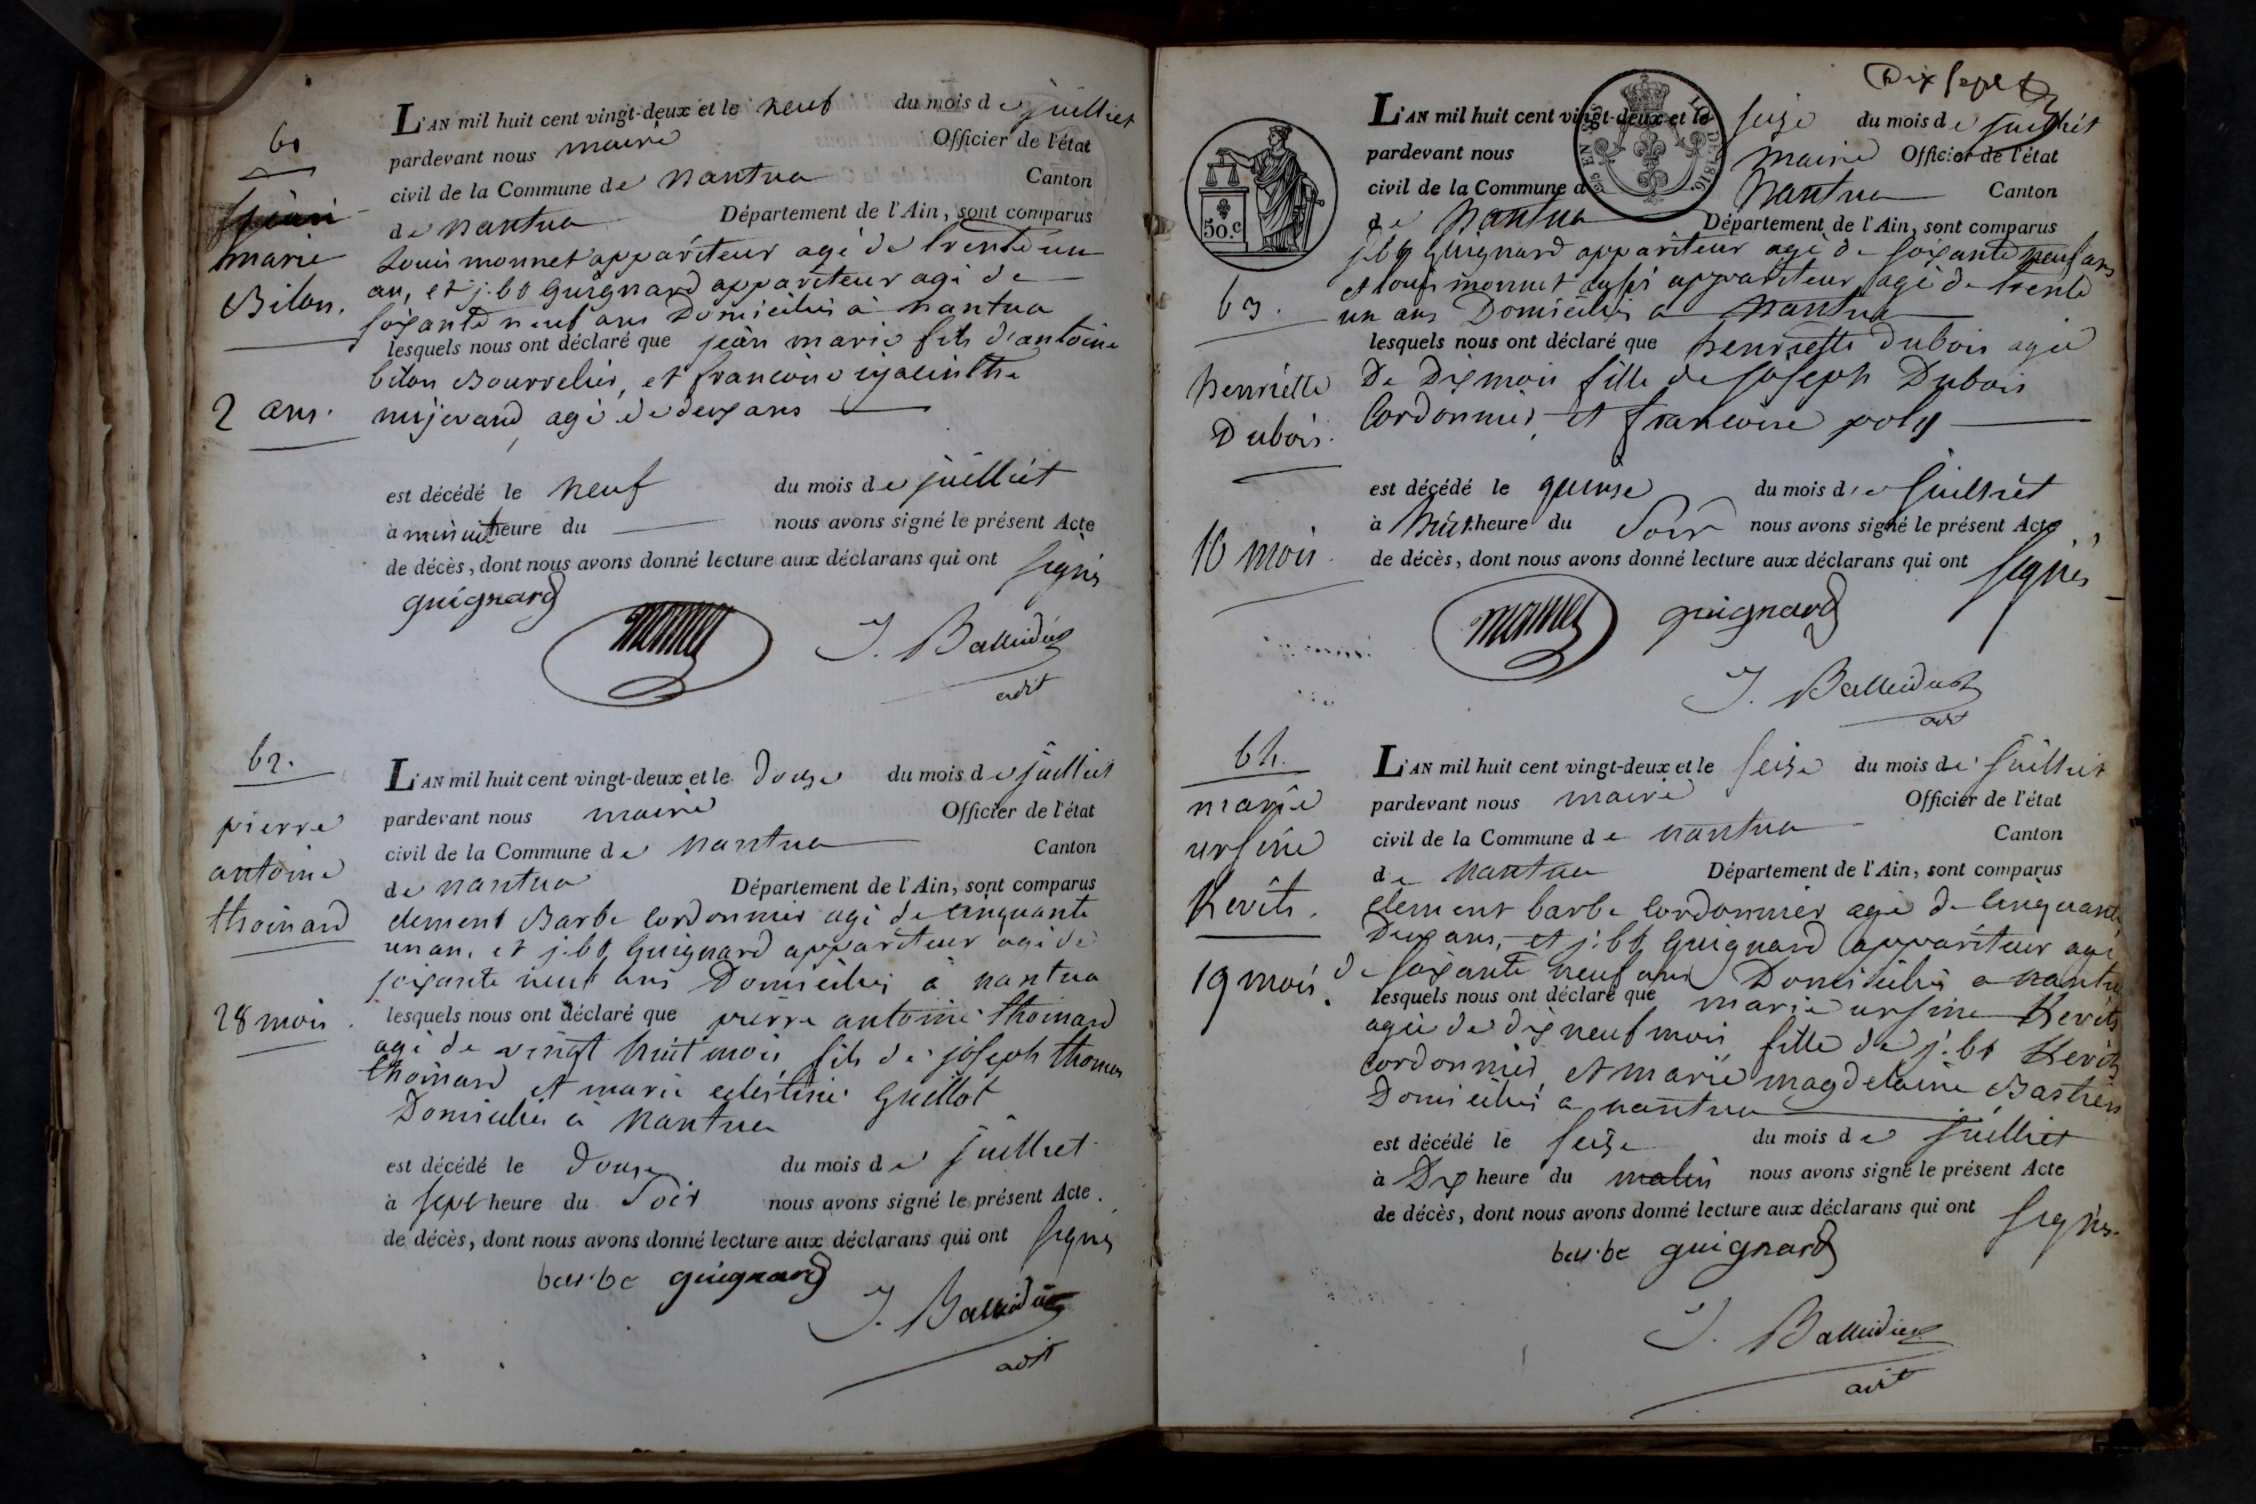 61
jean
marie
Bilon.
2 ans.
L'AN mil huit cent vingt-deux et le neuf du mois de juilliet
pardevant nous maire Officier de l'état
civil de la Commune de nantua Canton
de nantua Département de l'Ain, sont comparus
Louis monnet appariteur agé de trente un
an, et j. bt guignard appariteur agé de
soixante neuf ans Domiciliés à nantua
lesquels nous ont déclaré que jean marie fils d'antoine
bilon Bourrelier, et francoise hyacinthe
agé de deux ans
est décédé le neuf du mois de juilliet
à minuit heure du nous avons signé le présent Acte
de décès, dont nous avons donné lecture aux déclarans qui ont signés
guignard
monnet
J. Balleidier
adjt
62.
pierre
antoine
thoinard
28 mois.
L'AN mil huit cent vingt-deux et le douze du mois de juilliet
pardevant nous maire Officier de l'état
civil de la Commune de nantua Canton
de nantua Département de l'Ain, sont comparus
clement Barbe Cordonnier agé de cinquante
un an, et j. bt guignard appariteur agé de
soixante neuf ans Domiciliés à nantua
lesquels nous ont déclaré que pierre antoine thoinard
agé de vingt huit mois fils de joseph thomas
thoinard et marie celestine guillot
Domiciliés à nantua
est décédé le douze du mois de juilliet
à sept heure du Soir nous avons signé le présent Acte
de décès, dont nous avons donné lecture aux déclarans qui ont signés
barbe guignard
J. Balleidier
adjt
Dix sept
50.c
63.
henriette
Dubois.
10 mois.
L'AN mil huit cent vingt-deux et le seize du mois de juilliet
pardevant nous maire Officier de l'état
civil de la Commune de nantua Canton
de nantua Département de l'Ain, sont comparus
j. bt guignard appariteur agé de soixante neuf ans
et louis monnet aussi appariteur agé de trente
un ans Domiciliés a nantua
lesquels nous ont déclaré que henriette Dubois agée
De Dix mois fille de Joseph Dubois
Cordonnier et francoise poly
est décédé le quinze du mois de juilliet
à huit heure du Soir nous avons signé le présent Acte
de décès, dont nous avons donné lecture aux déclarans qui ont signés
monnet guignard
J. Balleidier
adjt
64.
marie
ursine
Kevits.
19 mois.
L'AN mil huit cent vingt-deux et le seize du mois de juilliet
pardevant nous maire Officier de l'état
civil de la Commune de nantua Canton
de nantua Département de l'Ain, sont comparus
clement barbe Cordonnier agé de cinquante
Deux ans, et j. bt guignard appariteur agé
de soixante neuf ans Domiciliés a nantua
lesquels nous ont déclaré que marie ursine Kevits
agée de dix neuf mois fille de j. bt Kevits
Cordonnier, et marie magdelaine Bastien
Domiciliés a nantua
est décédé le seize du mois de juilliet
à Dix heure du matin nous avons signé le présent Acte
de décès, dont nous avons donné lecture aux déclarans qui ont signés.
barbe guignard
J. Balleidier
adjt